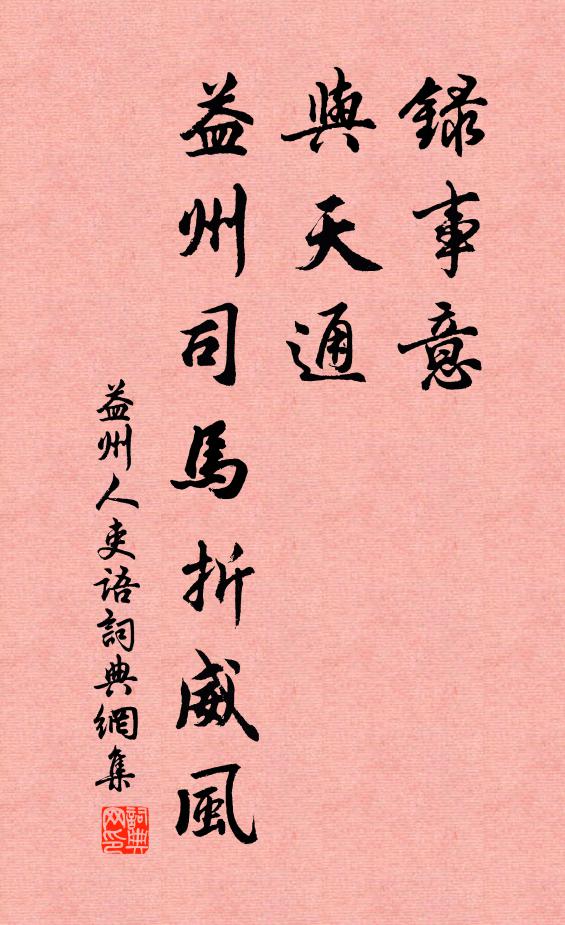 錄事意
與天通
益州司馬折威風
益州人吏語詞典網集
詞典
网印